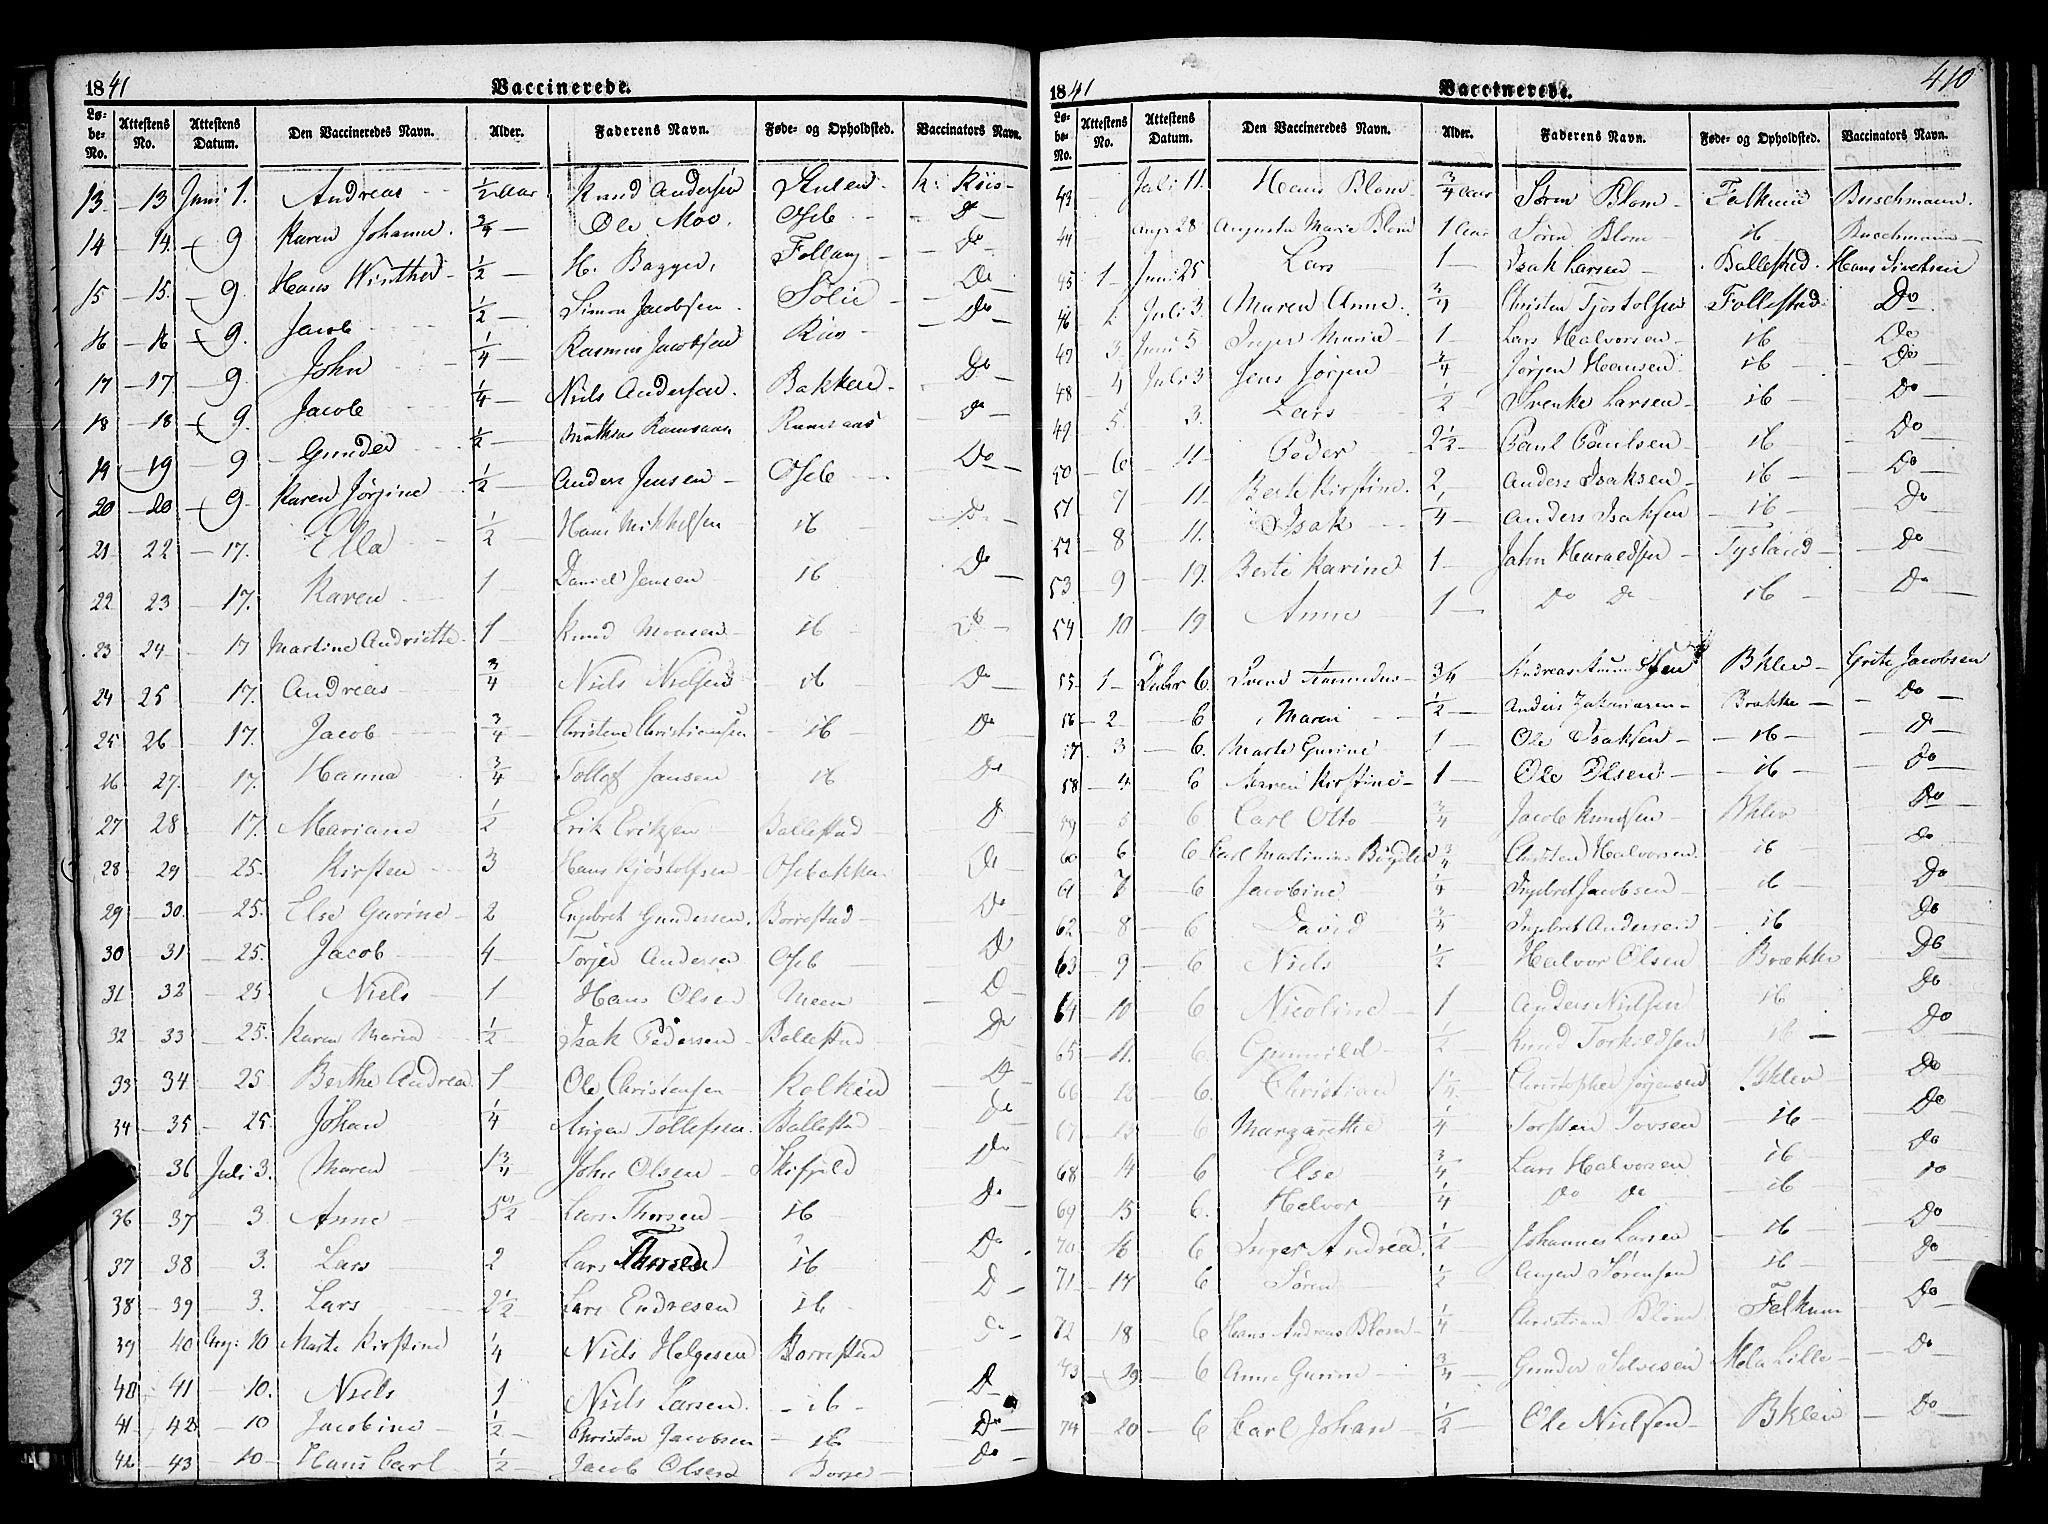 1841 Vaccinerede.
Løbe-No. Attestens No. Attestens Datum. Den Vaccineredes Navn. Alder. Faderens Navn. Føde- og Opholdsted. Vaccinators Navn.
13. 13 Juni 1. Andreas ½ Aar Knud Andersen Stulen K: Riis
14 14. 9 Karen Johanne ¾ Ole Moe. Oseb Do
15 15. 9. Hans Winther ½ H. Bagger, Follaug Do
16 16 9. Jacob ½ Simon Jacobsen Sølie Do
17 17. 9 John ¼ Rasmus Jacobsen Riis Do
18 18 9. Jacob ¼ Niels Andersen. Bakken Do
19 19 9 Gunder ½ Mathias Ramsaas Ramsaas Do
20 20 9. Karen Jørgine ½ Anders Jensen Oseb Do
21 22 17. Ella ½ Hans Mikkelsen ib Do
22 23 17. Karen 1 Daniel Jensen ib Do
23 24 17 Martine Andriette 1 Knud Monsen ib Do
24 25 17. Andreas ¾ Niels Nielsen ib Do
25 26 17. Jacob ¾ Christen Christiansen ib Do
26 27. 17. Hanna ¾ Tollof Jansen ib Do
27 28 17. Mariane ½ Erik Eriksen Ballestad D
28 29 25. Kirsten 3 Hans Kjøstolfsen Osebakken Do
29 30. 25. Else Gurine 2 Engebret Gundersen. Borrestad Do
30 31 25. Jacob 4 Torjer Andersen Oseb D
31 32 25 Niels 1 Hans Olsen Meen D
32 33 25. Karen Maria ½ Isak Pedersen Ballestad Do
33 34 25. Berthe Andrea 1 Ole Christensen Kolkin D
34 35 25. Johan ¼ Tollefsen Ballestad Do
36 Juli 3. Maren 1¾ John Olsen Skifjeld Do
36 37 3. Anne 5½ Lars Thorsen ib Do
37 38 3. Lars 2 Lars Thorsen ib Do
38 39 3. Lars 2½ Lars Endresen ib D
39 40 Aug: 10 Marte Kirstine ¼ Niels Helgesen Borrestad Do
40 41 10. Niels 1 Niels Larsen. ib D
41 42 10 Jacobine ½ Christen Jacobsen ib Do
42 43 10 Hans Carl ½ Jacob Olsen Borge Do
1841 Vaccinerede. 410
Løbe-No. Attestens No. Attestens Datum. Den Vaccineredes Navn. Alder. Faderens Navn. Føde- og Opholdsted. Vaccinators Navn.
43 Juli 11. Hans Blom ¾ Aar Søren Blom Falkum Buschmann.
44 Aug 28 Augusta Marie Blom 1 Aar Søren Blom ib Buschmann
45 1 Juni 25 Lars 1 Isak Larsen Ballestad Hans Sivertsen
46 2 Juli 3. Maren Anne ¾ Christen Tjostolfsen Follestad Do
47 3. Juni 5 Inger Maria 1 Lars Halvorsen ib Do
48 4 Juli 3 Jens Jørgen ¾ Jørgen Hansen ib Do
49 5. 3. Lars ½ Svenke Larsen ib Do
50 6 11. Peder 2½ Paul Paulsen ib Do
51 7 11. Berte Kirstine. 2 Anders Isaksen ib Do
52 8 11. Isak ¼ Anders Isaksen ib Do
53 9 19. Berte Karine 1 John Haraldsen Tysland Do
54 10 19 Anne 1 Do Do ib Do
55 1 Decbr 6. Svend Aamundus 34 Andreas Bklev Grete Jacobsen
56 2 6 Maren ½ Anders Zakariasen Brække Do
57 3 6. Marte Gurine 1 Ole Isaksen ib Do
58 4 6 Maren Kirstine 1 Ole Olsen ib Do
59 5 6 Carl Otto ¾ Jacob Knudsen Bklev Do
60 6 6 Carl Martinius ¾ Christen Halvorsen. ib Do
61 7 6 Jacobine ¼ Ingebret Jacobsen ib Do
62 8 6 David ¾ Ingebret Andersen ib Do
63 9 6 Niels ½ Halvor Olsen Brække Do
64 10 6 Nicoline 1 Anders Nielsen ib Do
65 11. 6. Gunnild ½ Knud Torkildsen ib Do
66 12 6. Christian 1¼ Christopher Jørgensen Bklev Do
67 13 6 Margarethe ¼ Torsten Tovsen ib Do
68 14 6 Else ¾ Lars Halvorsen ib Do
69 15 6. Halvor ¼ Do Do ib Do
70 16 6 Inger Andrea ½ Johannes Larsen ib Do
71 17 6 Søren ½ Sørensen ib Do
72 18 6 Hans Andreas Blom ¼ Christian Blom Falkum Do
73 19 6 Anne Gurine ¾ Gunder Solvesen Mela Lille Do
74 20 6 Carl Johan ½ Ole Nielsen Bklev Do